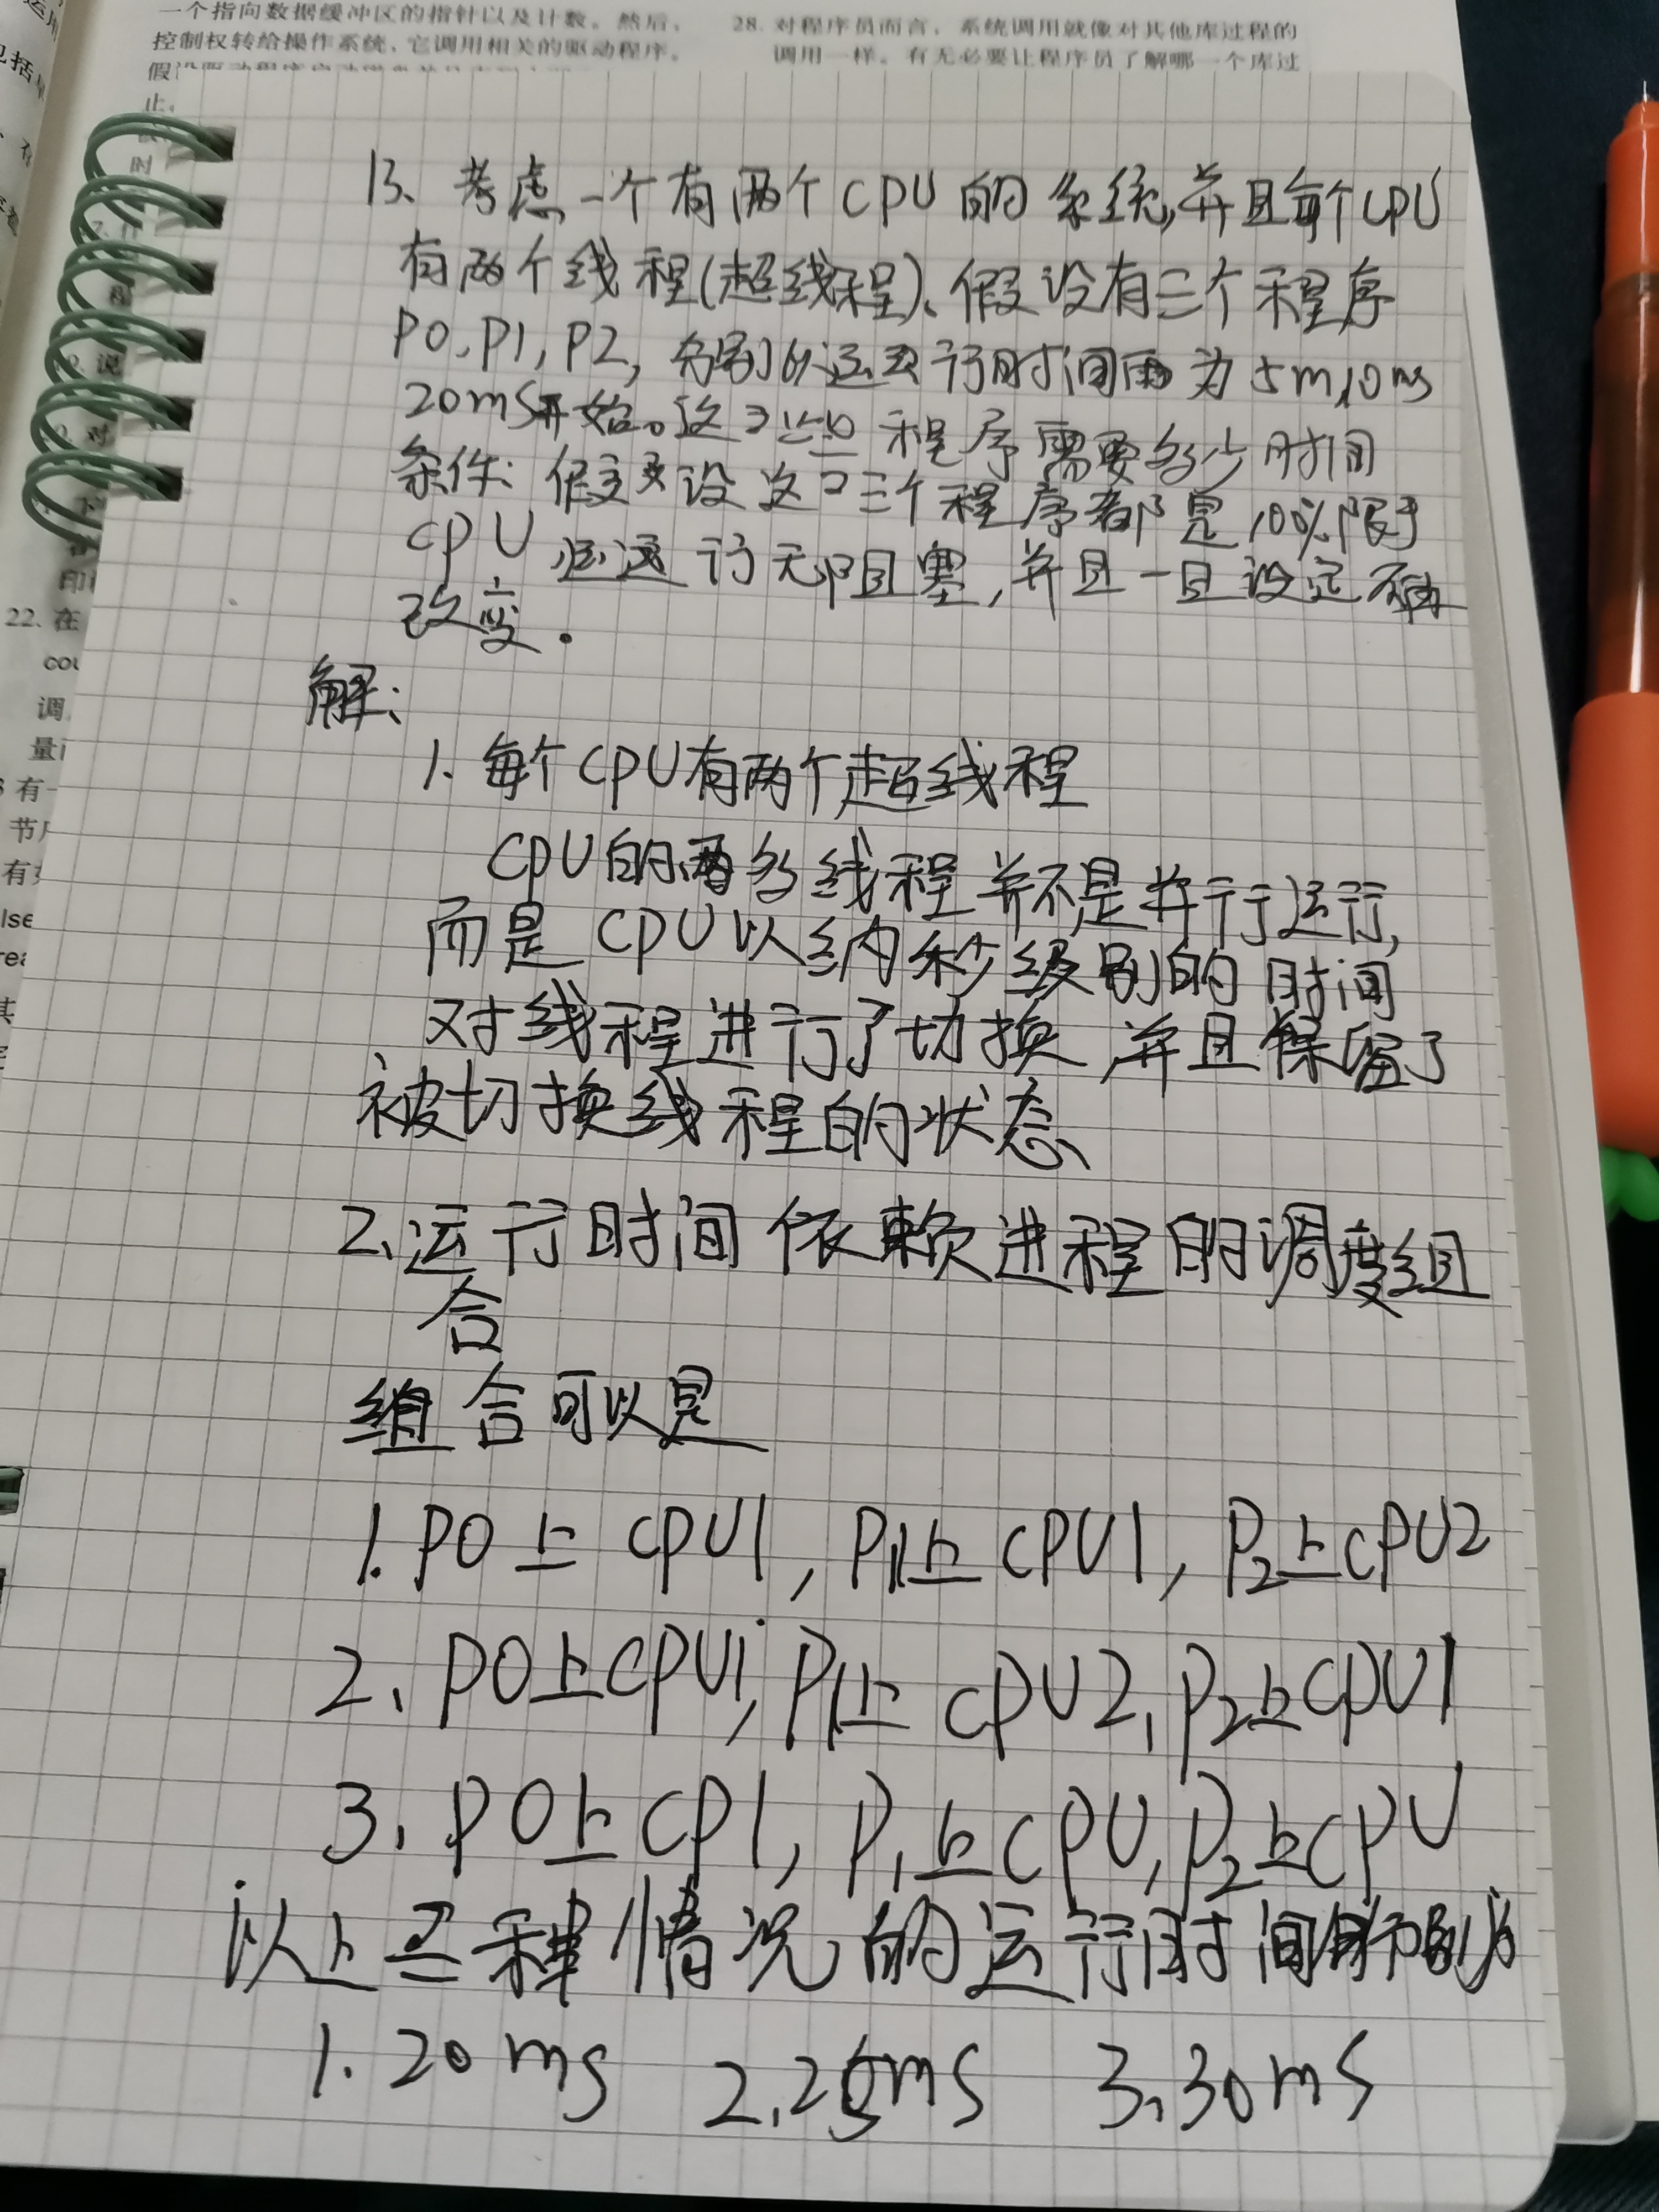 一个指向数据缓冲区的指针以及计数。然后,
控制权转给操作系统,它调用相关的驱动程序。
28. 对程序员而言,系统调用就像对其他库过程的
调用一样。有无必要让程序员了解哪一个库过
止,
时
22. 在
cou
调
量
有
节
有
lse
13、考虑一个有两个CPU的系统,并且每个CPU
有两个线程(超线程)、假设有三个程序
P0,P1,P2,分别以运行时间为5m,10ms
20ms开始。这些程序需要多少时间
条件:假设这三个程序都是100%限于
CPU运行无阻塞,并且一旦设定不再
改变.
解:
1.每个CPU有两个超线程
CPU的两多线程并不是并行运行,
而是CPU以纳秒级别的时间
对线程进行了切换,并且保留了
被切换线程的状态
2、运行时间依赖进程的调度组
合
组合可以是
1.P0上CPU1,P1上CPU1,P2上CPU2
2、P0上CPU1,P1上CPU2,P2上CPU1
3、P0上CP1,P1上CPU,P2上CPU
以上三种情况的运行时间分别为
1.20ms 2.25ms 3、30ms